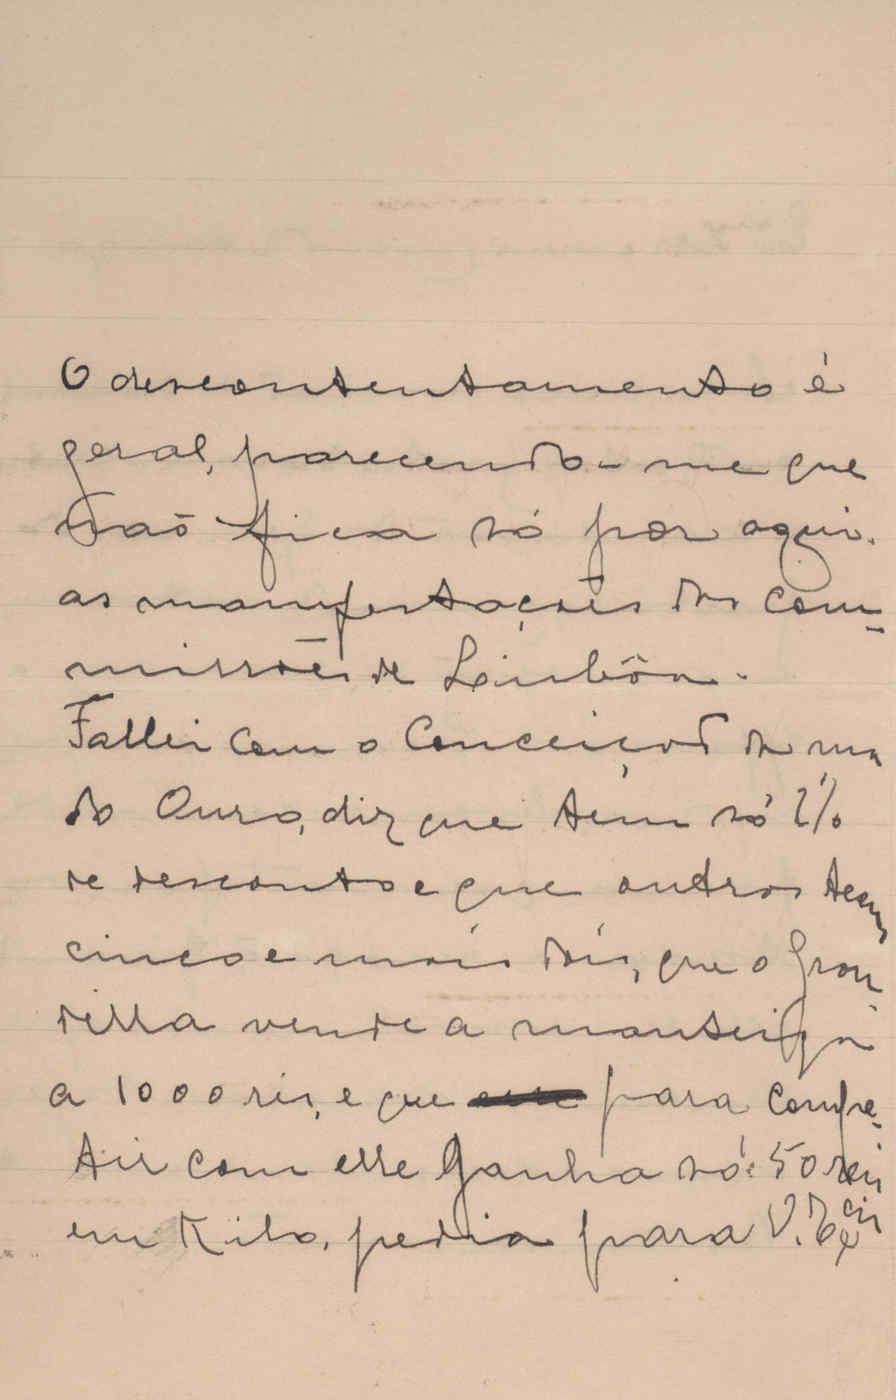 O descontentamento é
geral, parecendo-me que
não fica só por aqui.
as manifestações das com-
missões de Lisbôa.
Fallei com o Conceição da rua
do Ouro, diz que têm só 2%
de desconto e que outros teem
cinco e mais dois, que o Gran-
della vende a manteiga
a 1000 reis, e que para compe-
tir com elle ganha só 50 reis
em Kilo, pedia para V. Exc